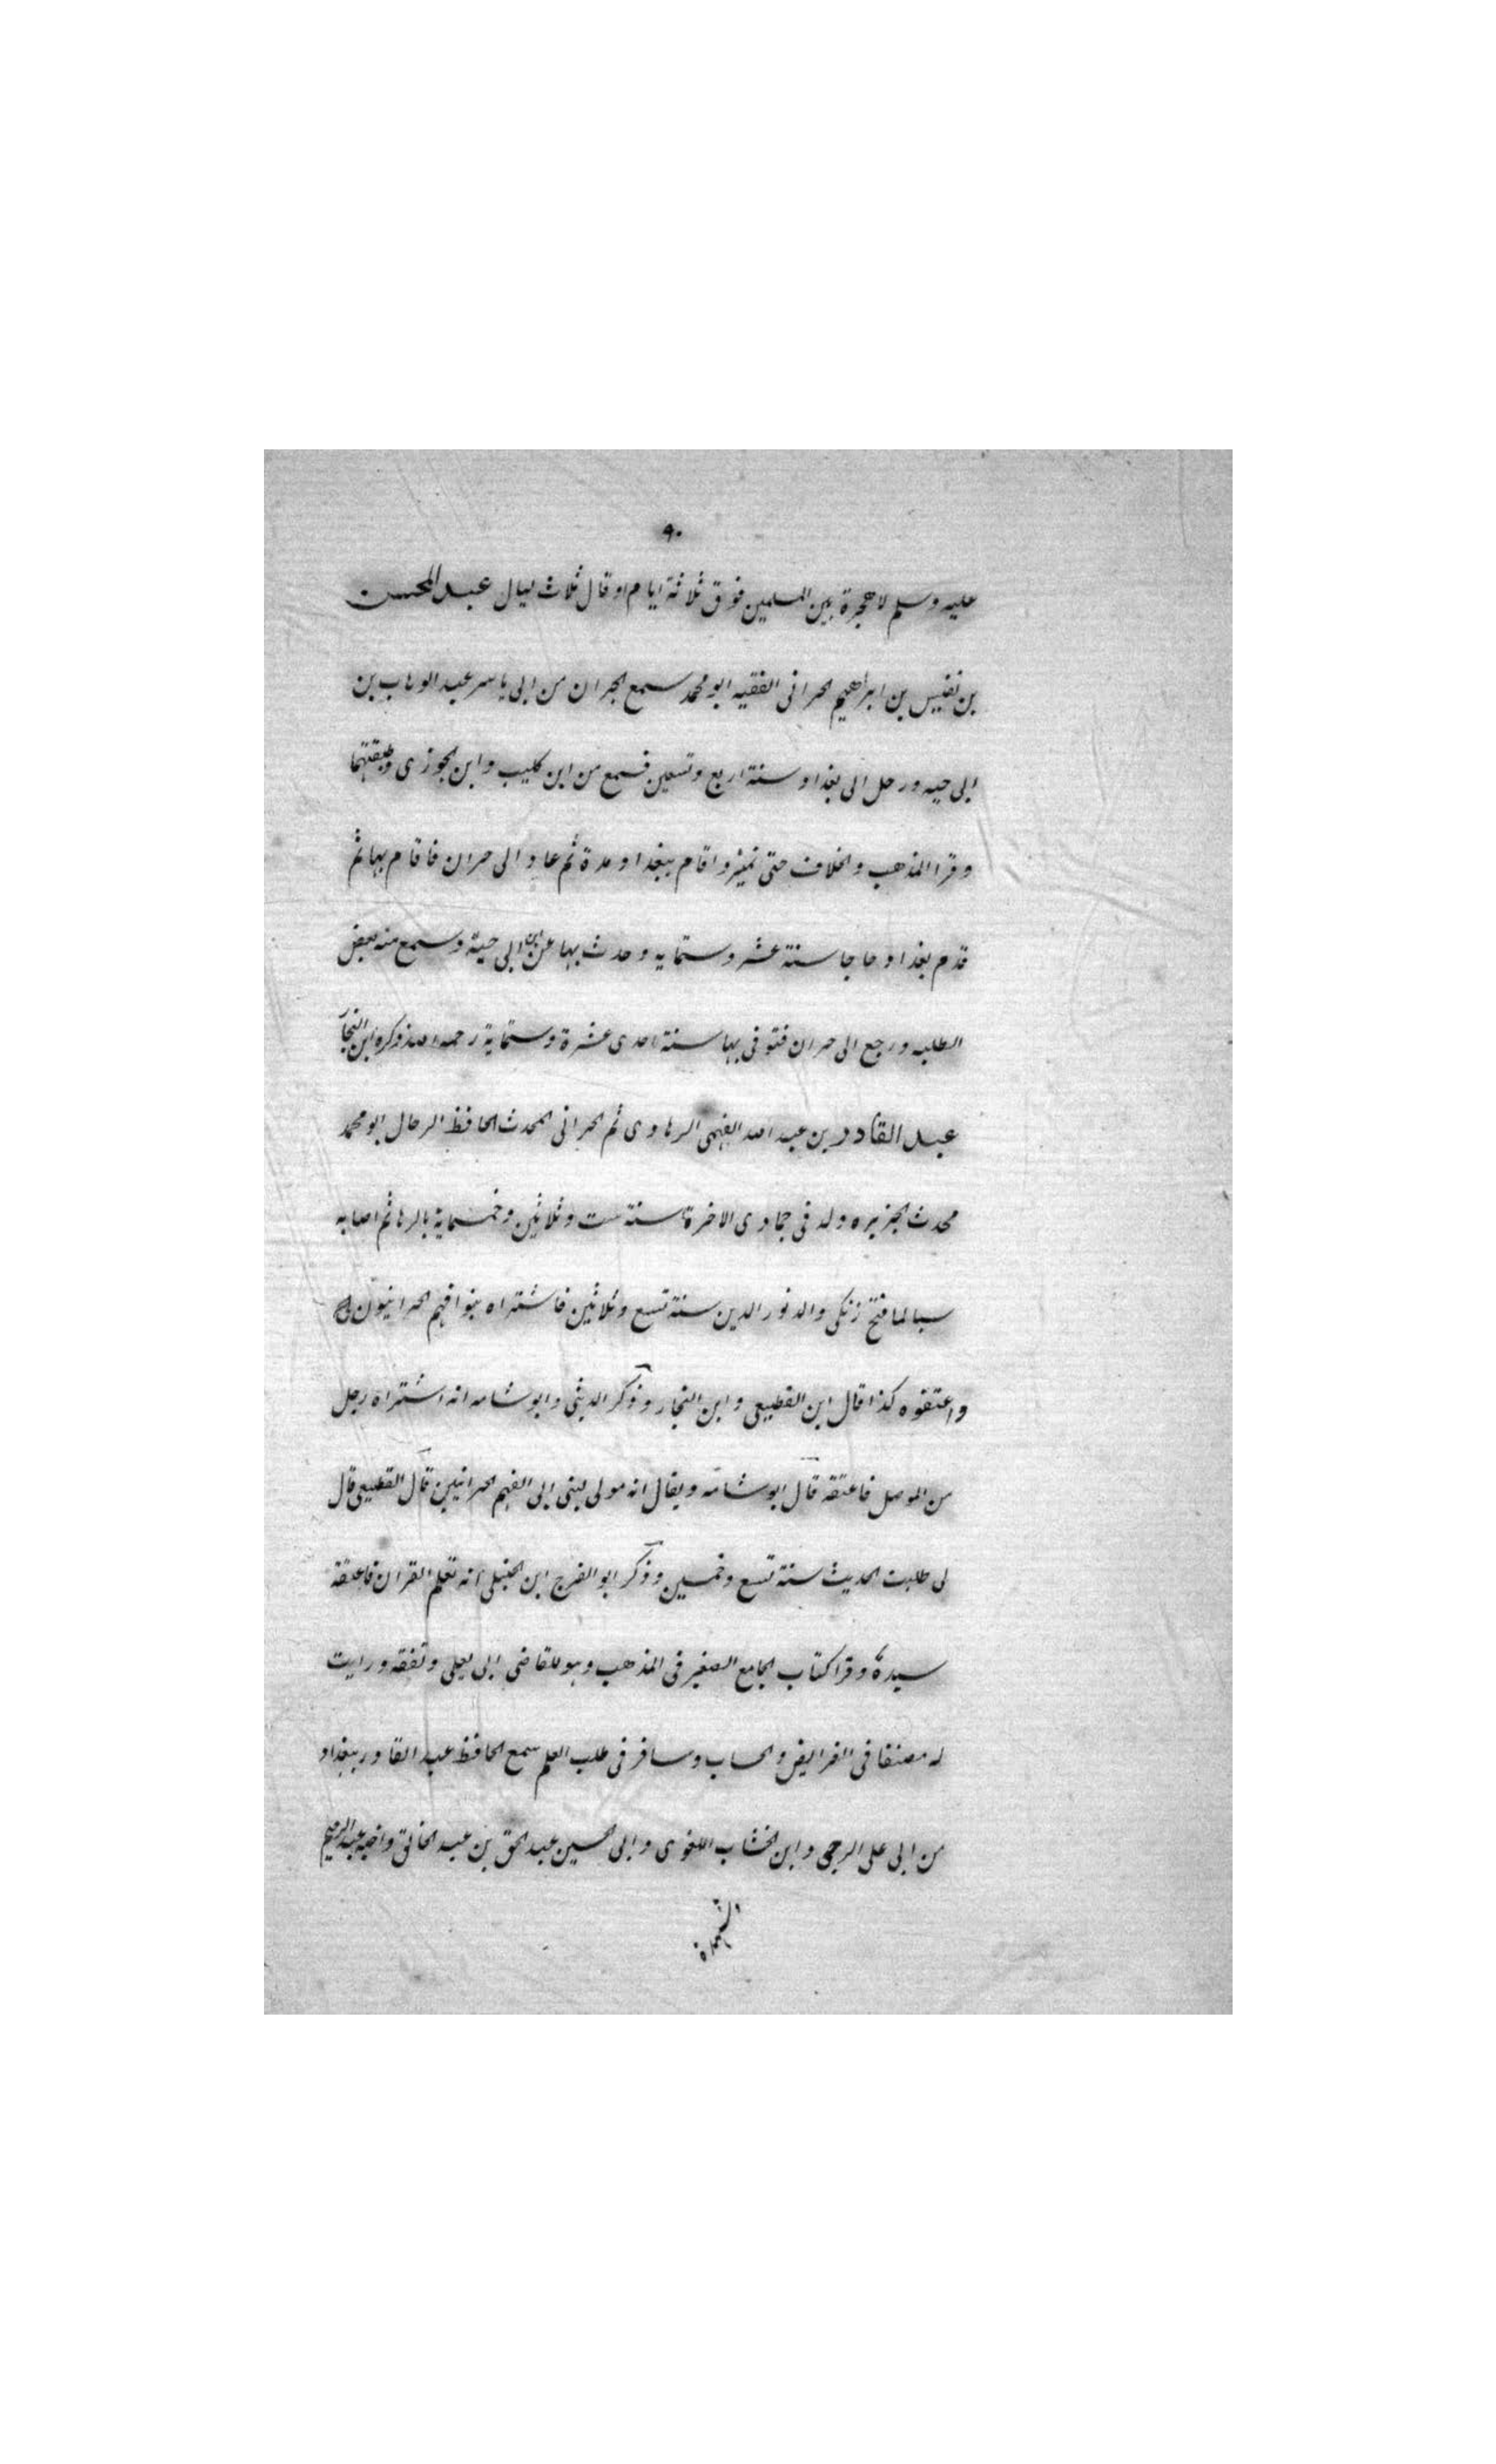 ٩٠
عليه وسلم لا هجرة بين المسلمين فوق ثلاثة ايام او قال ثلاث ليال عبد المحسن
بن نفيس بن ابراهيم الحرانى الفقيه ابو محمد سمع بحران من ابى ياسر عبد الوهاب بن
ابى حبه ورحل الى بغداد سنة اربع وتسعين فسمع من ابن كليب وابن الجوزى وطبقتهما
وقرا المذهب والخلاف حتى تميز واقام ببغداد مدة ثم عاد الى حران فاقام بها ثم
قدم بغداد حاجا سنة عشر وستمايه وحدث بها عن ابن ابى حية وسمع منه بعض
الطلبه ورجع الى حران فتوفى بها سنة احدى عشرة وستماية رحمه الله ذكره ابن النجار
عبد القادر بن عبد الله الفهمى الرهاوى ثم الحرانى المحدث الحافظ الرحال ابو محمد
محدث الجزيره ولد فى جمادى الاخرة سنة ست وثلاثين وخمسماية بالرها ثم اصابه
سبا لما فتح زنكى والد نور الدين سنة تسع وثلاثين فاشتراه بنوا فهم الحرانيون
واعتقوه كذا قال ابن القطيعى وابن النجار وذكر الدبيثى وابو شامه انه اشتراه رجل
من الموصل فاعتقه قال ابو شامه ويقال انه مولى لبنى ابى الفهم الحرانيين قال القطيعى قال
لى طلبت الحديث سنة تسع وخمسين وذكر ابو الفرج ابن الحنبلى انه تعلم القران فاعتقه
سيده وقرا كتاب الجامع الصغير فى المذهب وهو للقاضى ابى يعلى وتفقه ورايت
له مصنفا فى الفرايض والحساب وسافر فى طلب العلم سمع الحافظ عبد القادر ببغداد
من ابى على الرحبى وابن الخشاب اللغوى وابى الحسين عبد الحق بن عبد الخالق واخيه عبد الرحيم